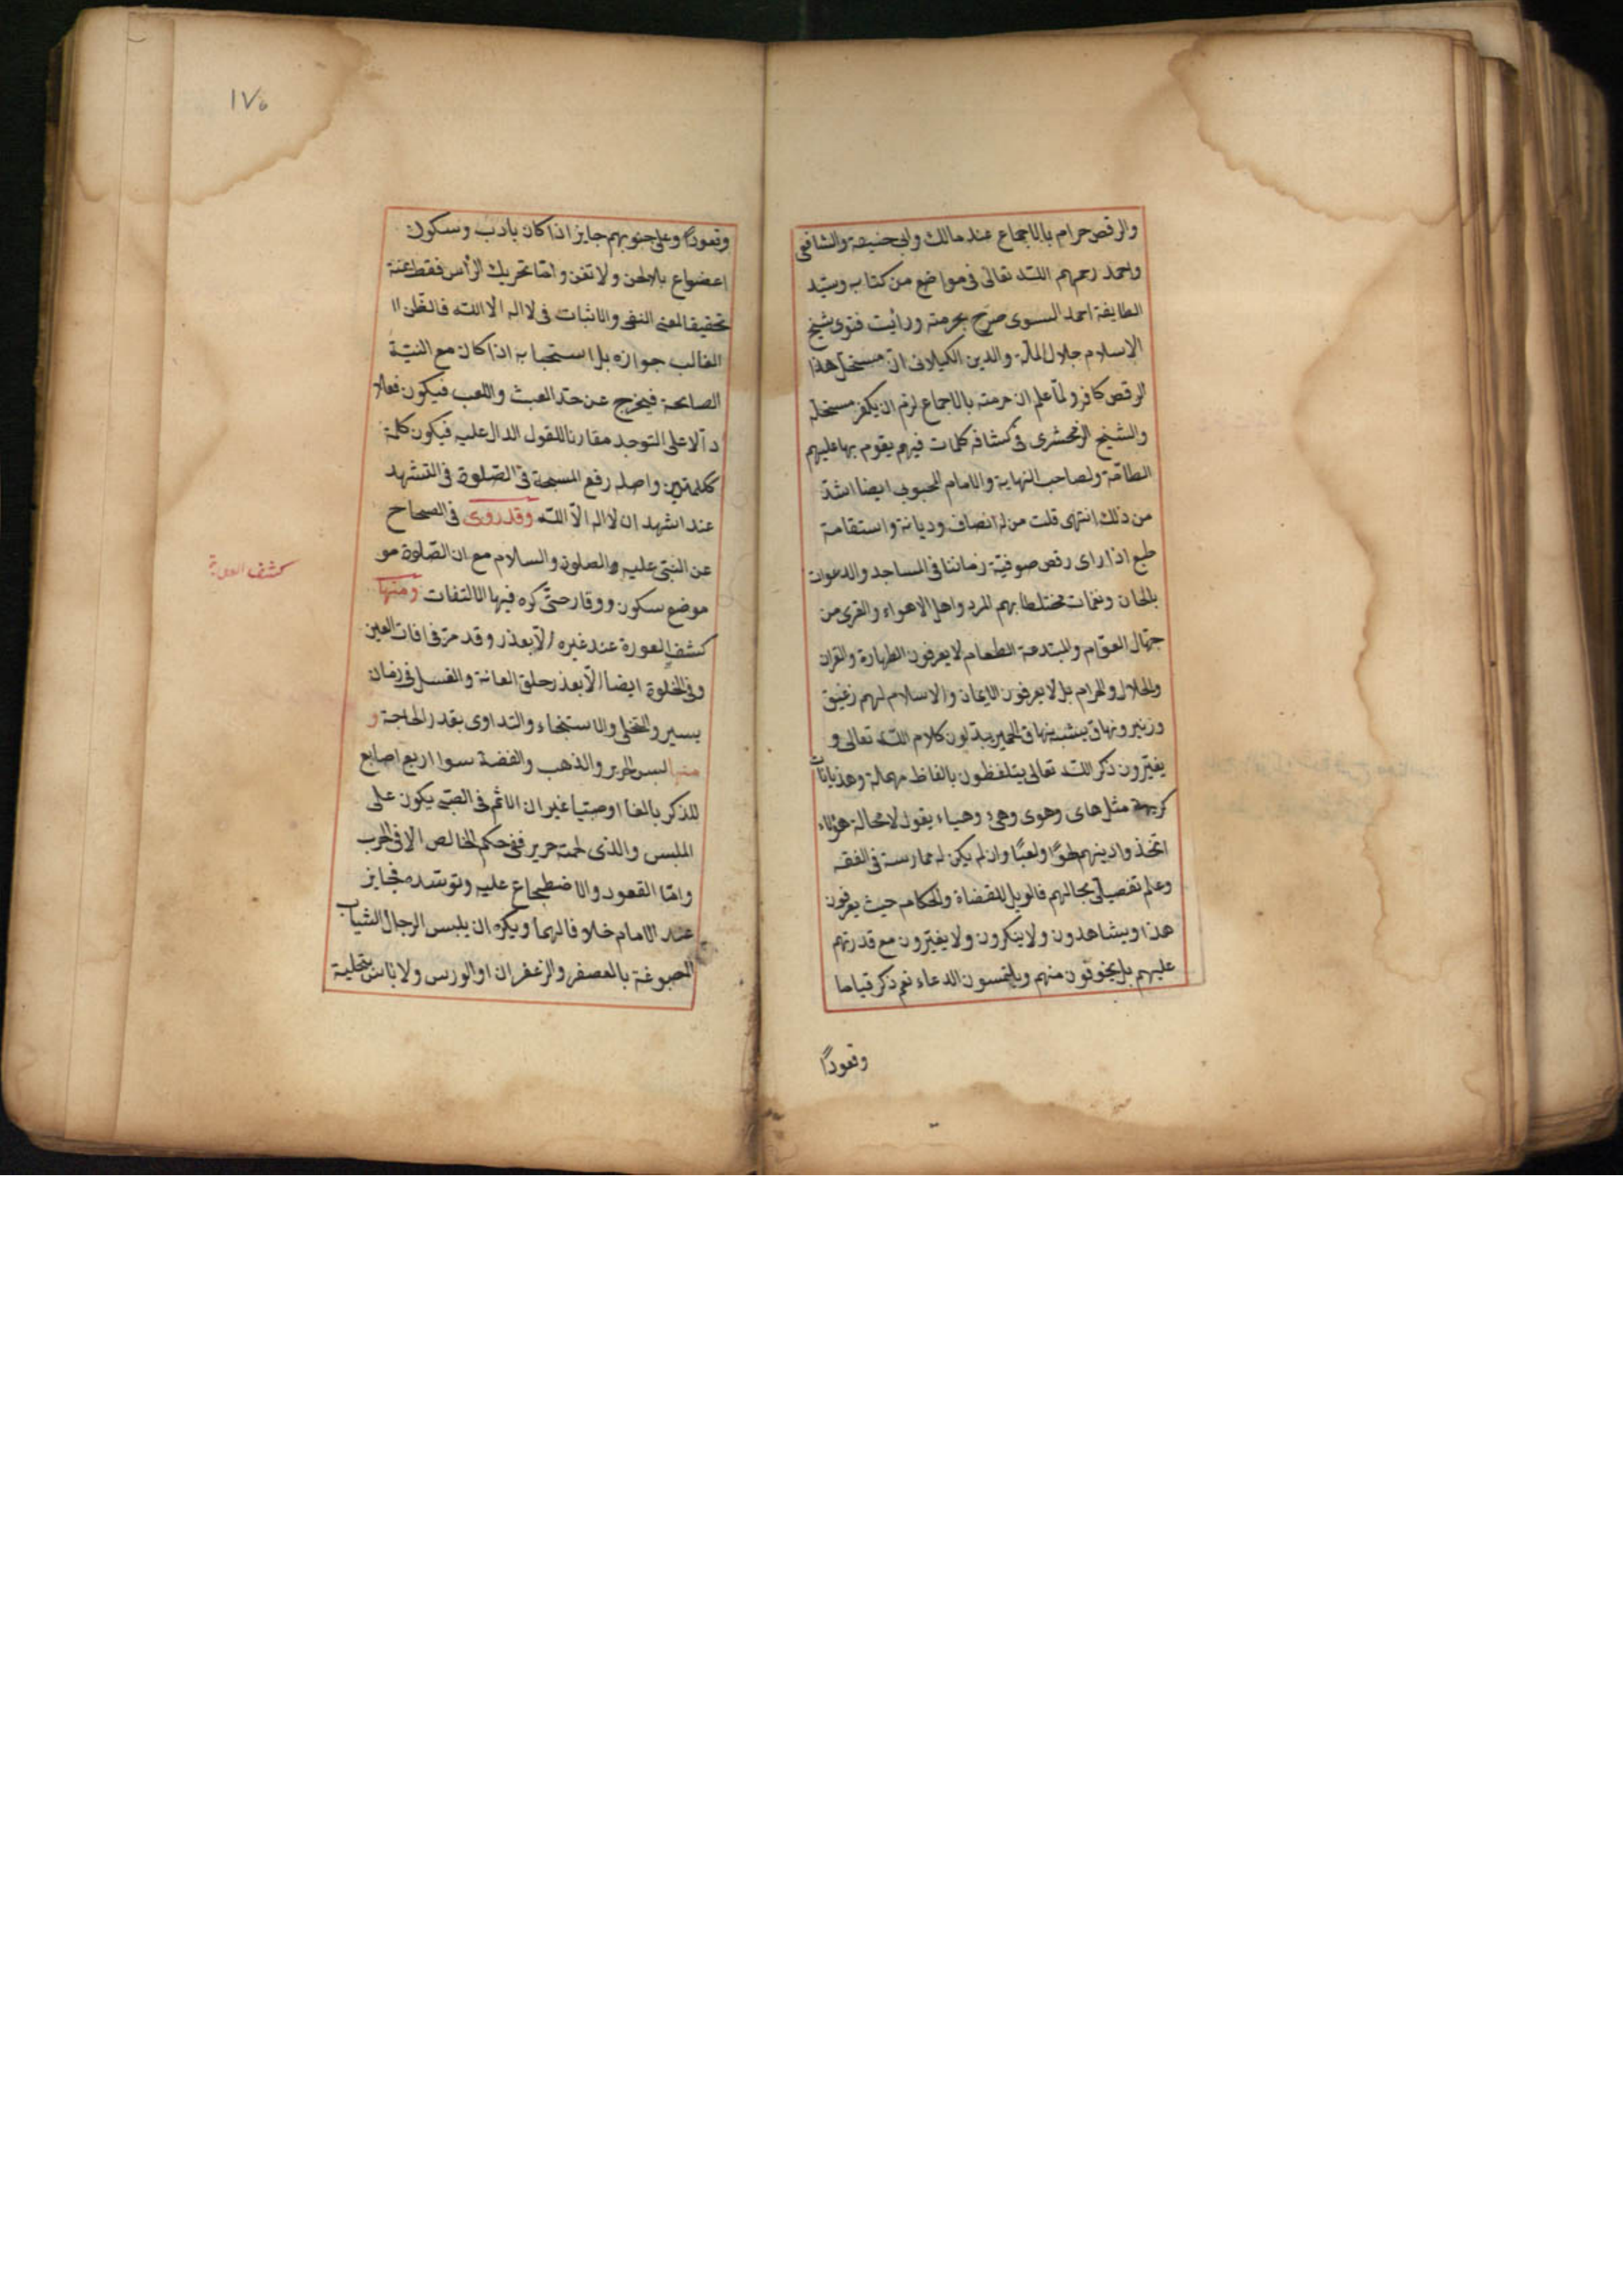 والرقص حرام بالاجماع عند مالك وابى حنيفة والشافعى
واحمد رحمهم الله تعالى فى مواضع من كتابه وسيّد
الطايفة احمد السوى صرّح بحرمته ورأيت فتوى شيخ
الاسلام جلال الملّة والدين الكيلانى انّ مستحلّ هذا
الرقص كافر ولمّا علم ان حرمته بالاجماع لزم ان يكفر مستحلّه
والشيخ الزمخشرى فى كشّافه كلمات فيهم يقوم بها عليهم
الطامّة ولصاحب النهاية والامام المحبوبى ايضا اشدّ
من ذلك انتهى قلت من له انصاف وديانة واستقامة
طبع اذا راى رقص صوفيّة زماننا فى المساجد والدعوات
بالحان ونغمات مختلطا بهم المرد واهل الاهواء والقرى من
جهّال العوّام والمبتدعة الطغام لا يعرفون الطهارة والقران
والحلال والحرام بل لا يعرفون الايمان والاسلام لهم زعيق
وزئير ونهاق يشبه نهاق الحمير يبدّلون كلام الله تعالى و
يغيّرون ذكر الله تعالى يتلفظون بالفاظ مهملة وهذيانات
كريهة مثل هاى وهوى وهى وهياء يقول لا محالة هؤلاء
اتخذوا دينهم لهوًا ولعبًا وان لم يكن له ممارسة فى الفقه
وعلم تفصيلى بحالهم فالويل للقضاة والحكام حيث يعرفون
هذا ويشاهدون ولا ينكرون ولا يغيّرون مع قدرتهم
عليهم بل يخوفون منهم ويلتمسون الدعاء نعم ذكر قياما
وقعودًا
١٧٥
وقعودًا وعلى جنوبهم جايز اذا كان بادب وسكون
اعضاء بلا لحن ولا تغن وامّا تحريك الرأس فقط يمنة
تحقيقا لمعنى النفى والاثبات فى لا اله الا الله فالظن ا
الغالب جوازه بل استحبابه اذا كان مع النيّة
الصالحة فيخرج عن حدّ العبث واللعب فيكون فعلا
دآلا على التوحد مقارنا للقول الدال عليه فيكون كلمة
ككلمتين واصله رفع المسبحة فى الصّلوة فى التشهد
عند اشهد ان لا اله الّا الله وقد روى فى الصحاح
عن النبىّ عليه والصلوة والسلام مع ان الصّلوة مو
موضع سكون ووقار حتّى كره فيها الالتفات ومنها
كشف العورة عند غيره الّا بعذر وقد مرّ فى افات العين
وفى الخلوة ايضا الّا بعذر حلق العانة والغسل فى زمان
يسير والتخلى والاستنجاء والتداوى بقدر الحاجة و
منها لبس الحرير والذهب والفضة سوا اربع اصابع
للذكر بالغا او صبيّا غير ان الاثم فى الصبّى يكون على
الملبس والذى لحمته حرير ففى حكم الخالص الا فى الحرب
وامّا القعود والاضطجاع عليه وتوسّده فجايز
عند الامام خلافا لهما ويكره ان يلبس الرجال الثياب
المصبوغة بالعصفر والزعفران او الورس ولا باس بتحلية
كشف العورة